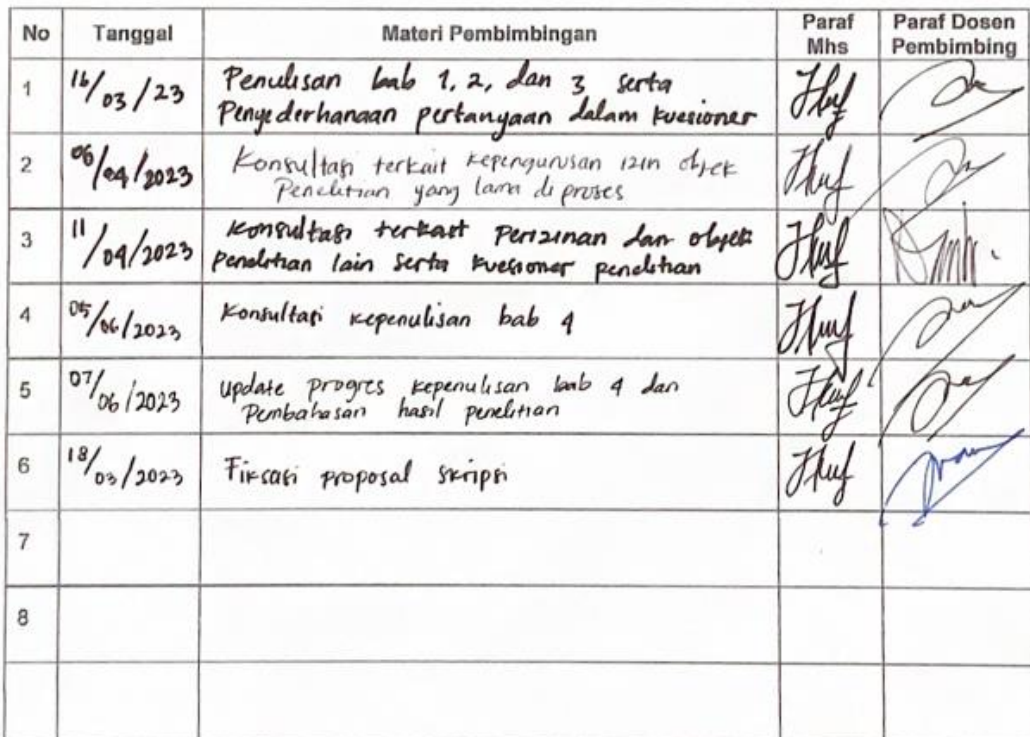 No Tanggal Materi Pembimbingan Paraf Mhs Paraf Dosen Pembimbing
1 16/03/23 Penulisan bab 1, 2, dan 3 serta
Penyederhanaan pertanyaan dalam kuesioner
2 06/04/2023 Konsultasi terkait kepengurusan izin objek
Penelitian yang lama di proses
3 11/04/2023 Konsultasi terkait perizinan dan objek
penelitian lain serta kuesioner penelitian
4 05/06/2023 Konsultasi kepenulisan bab 4
5 07/06/2023 Update progres kepenulisan bab 4 dan
Pembahasan hasil penelitian
6 18/03/2023 Fiksasi proposal skripsi
7
8